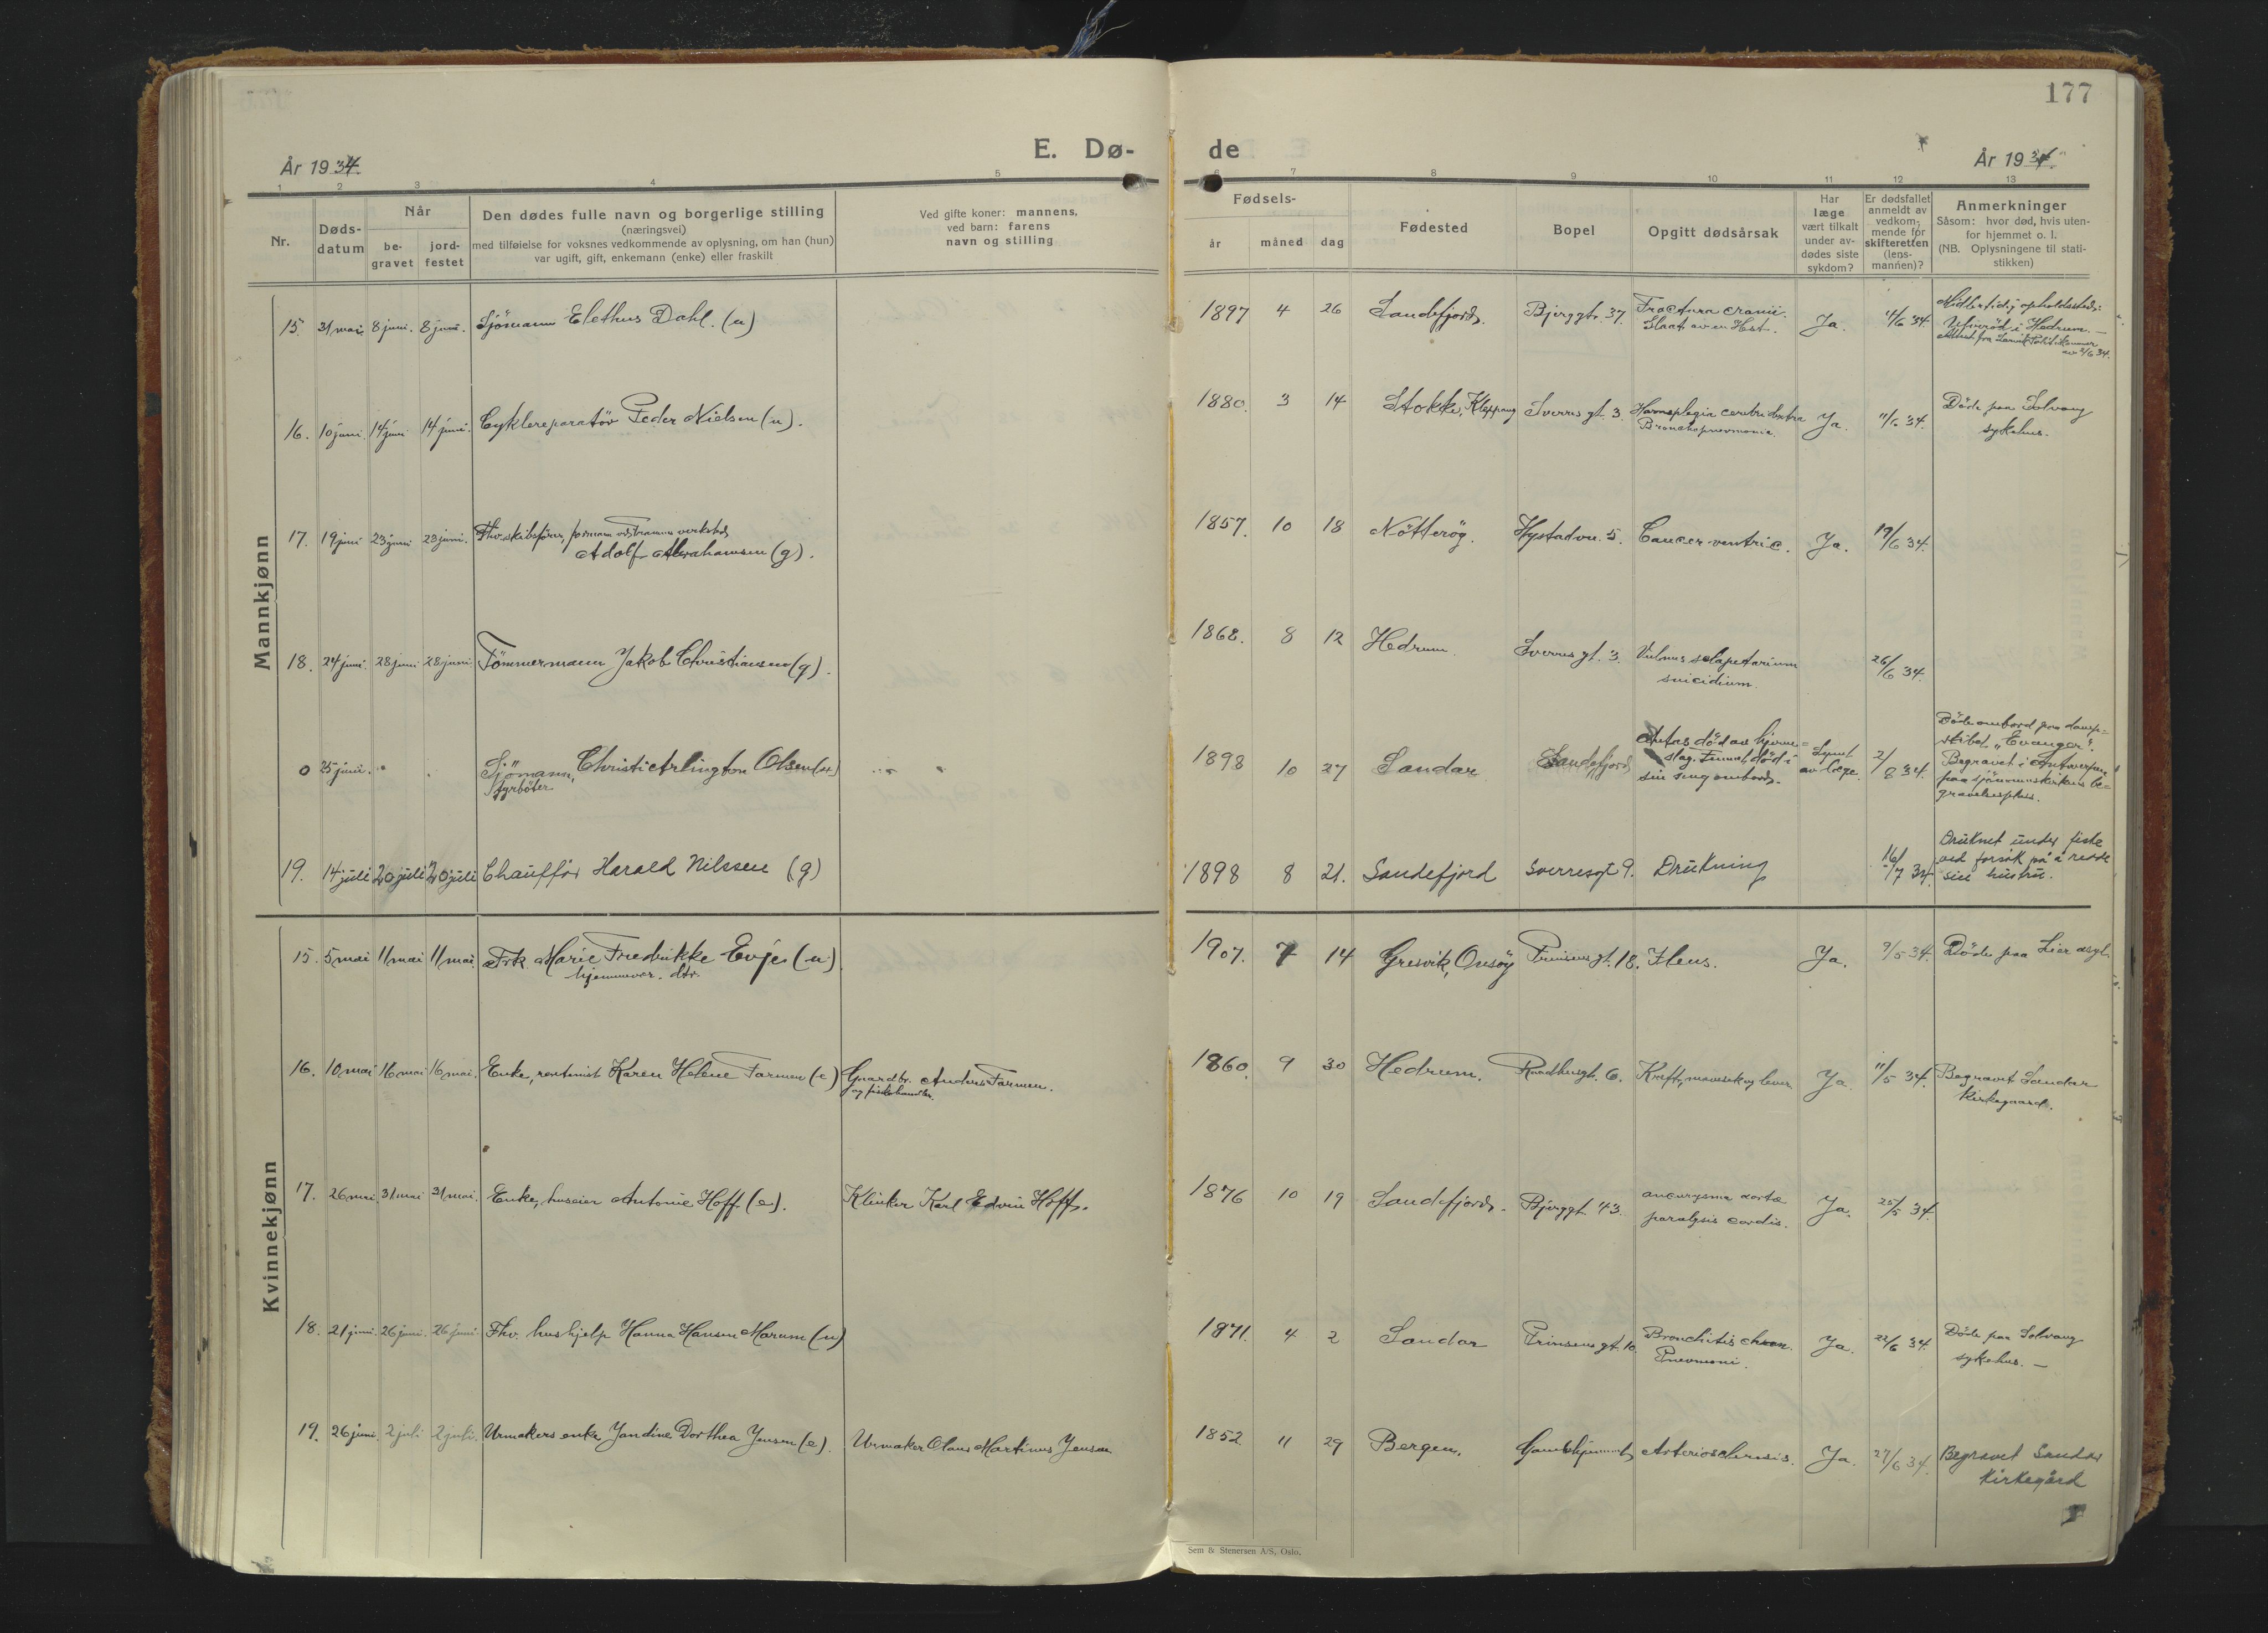 177
E. Dø-
de
År 1934.
År 1934.
1 2 3 4 5
6 7 8 9 10 11 12 13
Nr.
Døds-
datum
Når
be-
gravet
jord-
festet
Den dødes fulle navn og borgerlige stilling
(næringsvei)
med tilføielse for voksnes vedkommende av oplysning, om han (hun)
var ugift, gift, enkemann (enke) eller fraskilt
Ved gifte koner: mannens,
ved barn: farens
navn og stilling
Fødsels-
år
måned
dag
Fødested
Bopel
Opgitt dødsårsak
Har
læge
vært tilkalt
under av-
dødes siste
sykdom?
Er dødsfallet
anmeldt av
vedkom-
mende for
skifteretten
(lens-
mannen)?
Anmerkninger
Såsom: hvor død, hvis uten-
for hjemmet o. l.
(NB. Oplysningene til stati-
stikken)
Mannkjønn
15. 31 mai 8 juni. 8 juni. Sjömann Elethus Dahl. (u)
1897 4 26 Sandefjord. Bjerggt. 37. Fractura cranii.
Slaat av en Hest. Ja. 4/6 34.
Midlertidig opholdssted:
i Hedrum. —
fra Larvik Politikammer
av 2/6 34.
16. 10 juni 14 juni 14 juni. Cyklereparatör Peder Nielsen (u).
1880. 3 14 Stokke, Kleppang Sverres gt. 3.
Bronchopneumonia. Ja. 11/6 34.
Döde paa Solvang
sykehus.
17. 19 juni 23 juni 23 juni. Fhv. skibsförer, formann ved Framnæs verksted
Adolf Abrahamsen (g).
1857. 10 18 Nötteröy. Hystadvn. 5. Cancer ventric. Ja. 19/6 34.
18. 24 juni. 28 juni 28 juni. Tömmermann Jakob Christiansen (g).
1868. 8 12 Hedrum. Sverres gt. 3. Vulnus sclopetarium
suicidium. 26/6 34.
0 25 juni. Sjömann, Christic Arlington Olsen
fyrböter
1898 10 27 Sandar Sandefjord Antas död av hjerne=
slag. Funnet död i
sin seng ombord. Synet
av læge. 2/8 34.
Döde ombord paa damp=
skibet "Evanger".
Begravet i Antwerpen
paa sjömannskirkens be=
gravelsesplass.
19. 14 juli 20 juli 20 juli Chauffør Harald Nilssen (g)
1898 8 21. Sandefjord Sverresgt 9. Drukning 16/7 34.
Druknet under fiske
ved forsøk på å redde
sin hustru.
Kvinnekjønn
15. 5 mai 11 mai 11 mai. Frk. Marie Fredrikke Evje (u)
hjemmevær. dtr.
1907. 7 14 Gresvik, Onsöy Prinsens gt. 18. Ileus. Ja. 9/5 34. Döde paa Lier asyl.
16. 10 mai 16 mai 16 mai. Enke, rentenist Karen Helene Farmen (e) Gaardbr. Anders Farmen.
og fiskehandler.
1860. 9 30 Hedrum. Raadhusgt. 6. Kræft, mavesek og lever Ja 11/5 34. Begravet Sandar
Kirkegaard.
17. 26 mai 31 mai 31 mai. Enke, huseier Antonie Hoff (e). Klinker Karl Edvin Hoff.
1876 10 19 Sandefjord. Bjerggt. 43. aneurysma aortæ
paralysis cordis. Ja. 25/5 34.
18. 21 juni. 26 juni. 26 juni. Fhv. hushjelp Hanna Hansen Marum (u)
1871. 4 2 Sandar Prinsens gt. 10. Bronchitis chron.
Pneumoni. Ja. 22/6 34. Döde paa Solvang
sykehus. —
19. 26 juni. 2 juli 2 juli. Urmakers enke Jandine Dorthea Jensen (e). Urmaker Olaus Martinus Jensen
1852. 11 29 Bergen. Gamlehjemmet Arteriosclerosis. Ja. 27/6 34. Begravet Sandar
Kirkegård
Sem & Stenersen A/S, Oslo.